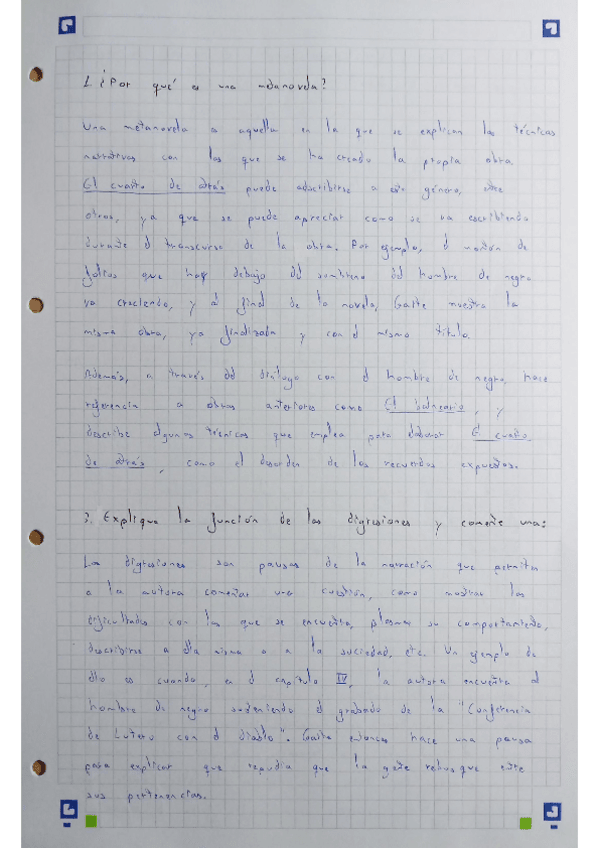 1. ¿Por qué es una metanovela?
Una metanovela es aquella en la que se explican las técnicas
narrativas con las que se ha creado la propia obra.
El cuarto de atrás puede adscribirse a este género, entre
otros, ya que se puede apreciar como se va escribiendo
durante el transcurso de la obra. Por ejemplo, el montón de
folios que hay debajo del sombrero del hombre de negro
va creciendo, y al final de la novela, Gaite muestra la
misma obra, ya finalizada y con el mismo título.
Además, a través del diálogo con el hombre de negro, hace
referencia a obras anteriores como El balneario, y
describe algunas técnicas que emplea para elaborar El cuarto
de atrás, como el desorden de los recuerdos expuestos.
2. Explique la función de las digresiones y comente una:
Las digresiones son pausas de la narración que permiten
a la autora comentar una cuestión, como mostrar las
dificultades con las que se encuentra, plasmar su comportamiento,
describirse a ella misma o a la sociedad, etc. Un ejemplo de
ello es cuando, en el capítulo IV, la autora encuentra al
hombre de negro sosteniendo el grabado de la "Conferencia
de Lutero con el diablo". Gaite entonces hace una pausa
para explicar que repudia que la gente rebusque entre
sus pertenencias.